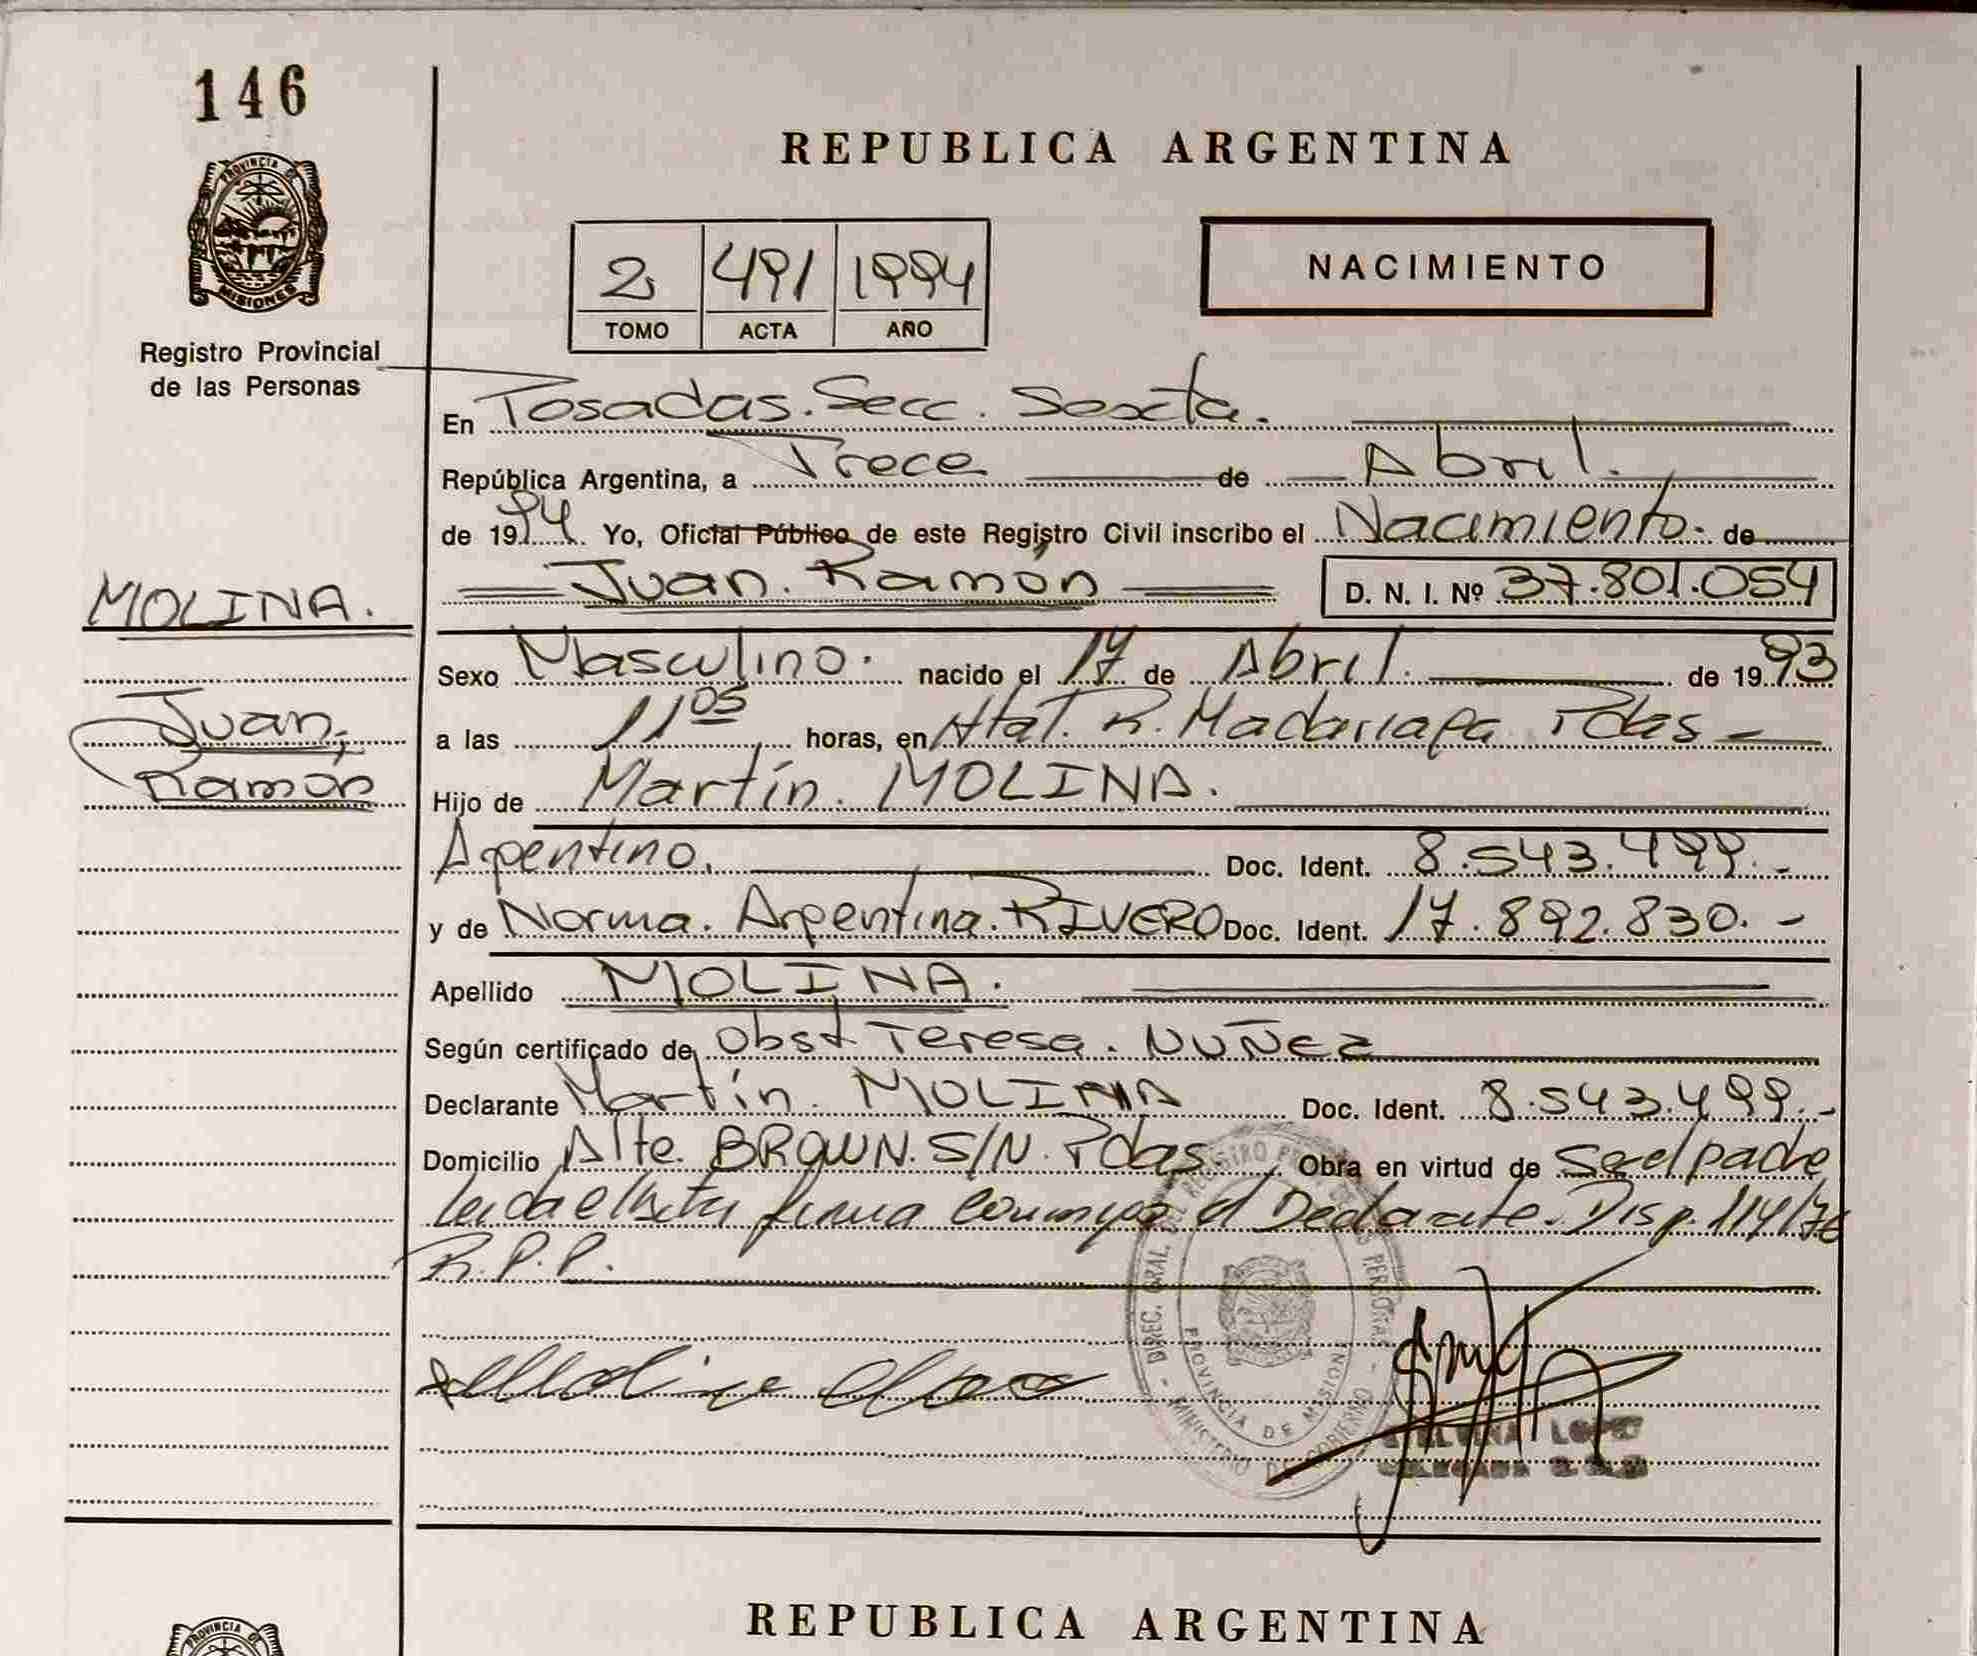 146
PROVINCIA DE
MISIONES
Registro Provincial
de las Personas
REPUBLICA ARGENTINA
2 491 1994
TOMO ACTA AÑO
NACIMIENTO
En Posadas. Secc. Sexta.
República Argentina, a Trece de Abril.
de 1994 Yo, Oficial Público de este Registro Civil inscribo el Nacimiento de
Juan Ramón D. N. I. Nº 37.801.054
MOLINA.
Sexo Masculino. nacido el 17 de Abril. de 1993
Juan,
a las 11 05 horas, en Htal. R. Madariaga Pdas
Ramón
Hijo de Martín. MOLINA.
Argentino. Doc. Ident. 8.543.499.-
y de Norma. Argentina. RIVERO Doc. Ident. 17.892.830.-
Apellido MOLINA.
Según certificado de Obst Teresa. NUÑEZ
Declarante Martín. MOLINA Doc. Ident. 8.543.499.-
Domicilio Alte. BROWN. S/N. Pdas. Obra en virtud de Ser el padre
Leida el Acta firma conmigo el Declarante. Disp. 114/76
R.P.P.
DIREC. GRAL. DEL REGISTRO PROV. DE LAS PERSONAS
PROVINCIA DE MISIONES
MINISTERIO DE GOBIERNO
LOPEZ
REPUBLICA ARGENTINA
PROVINCIA DE